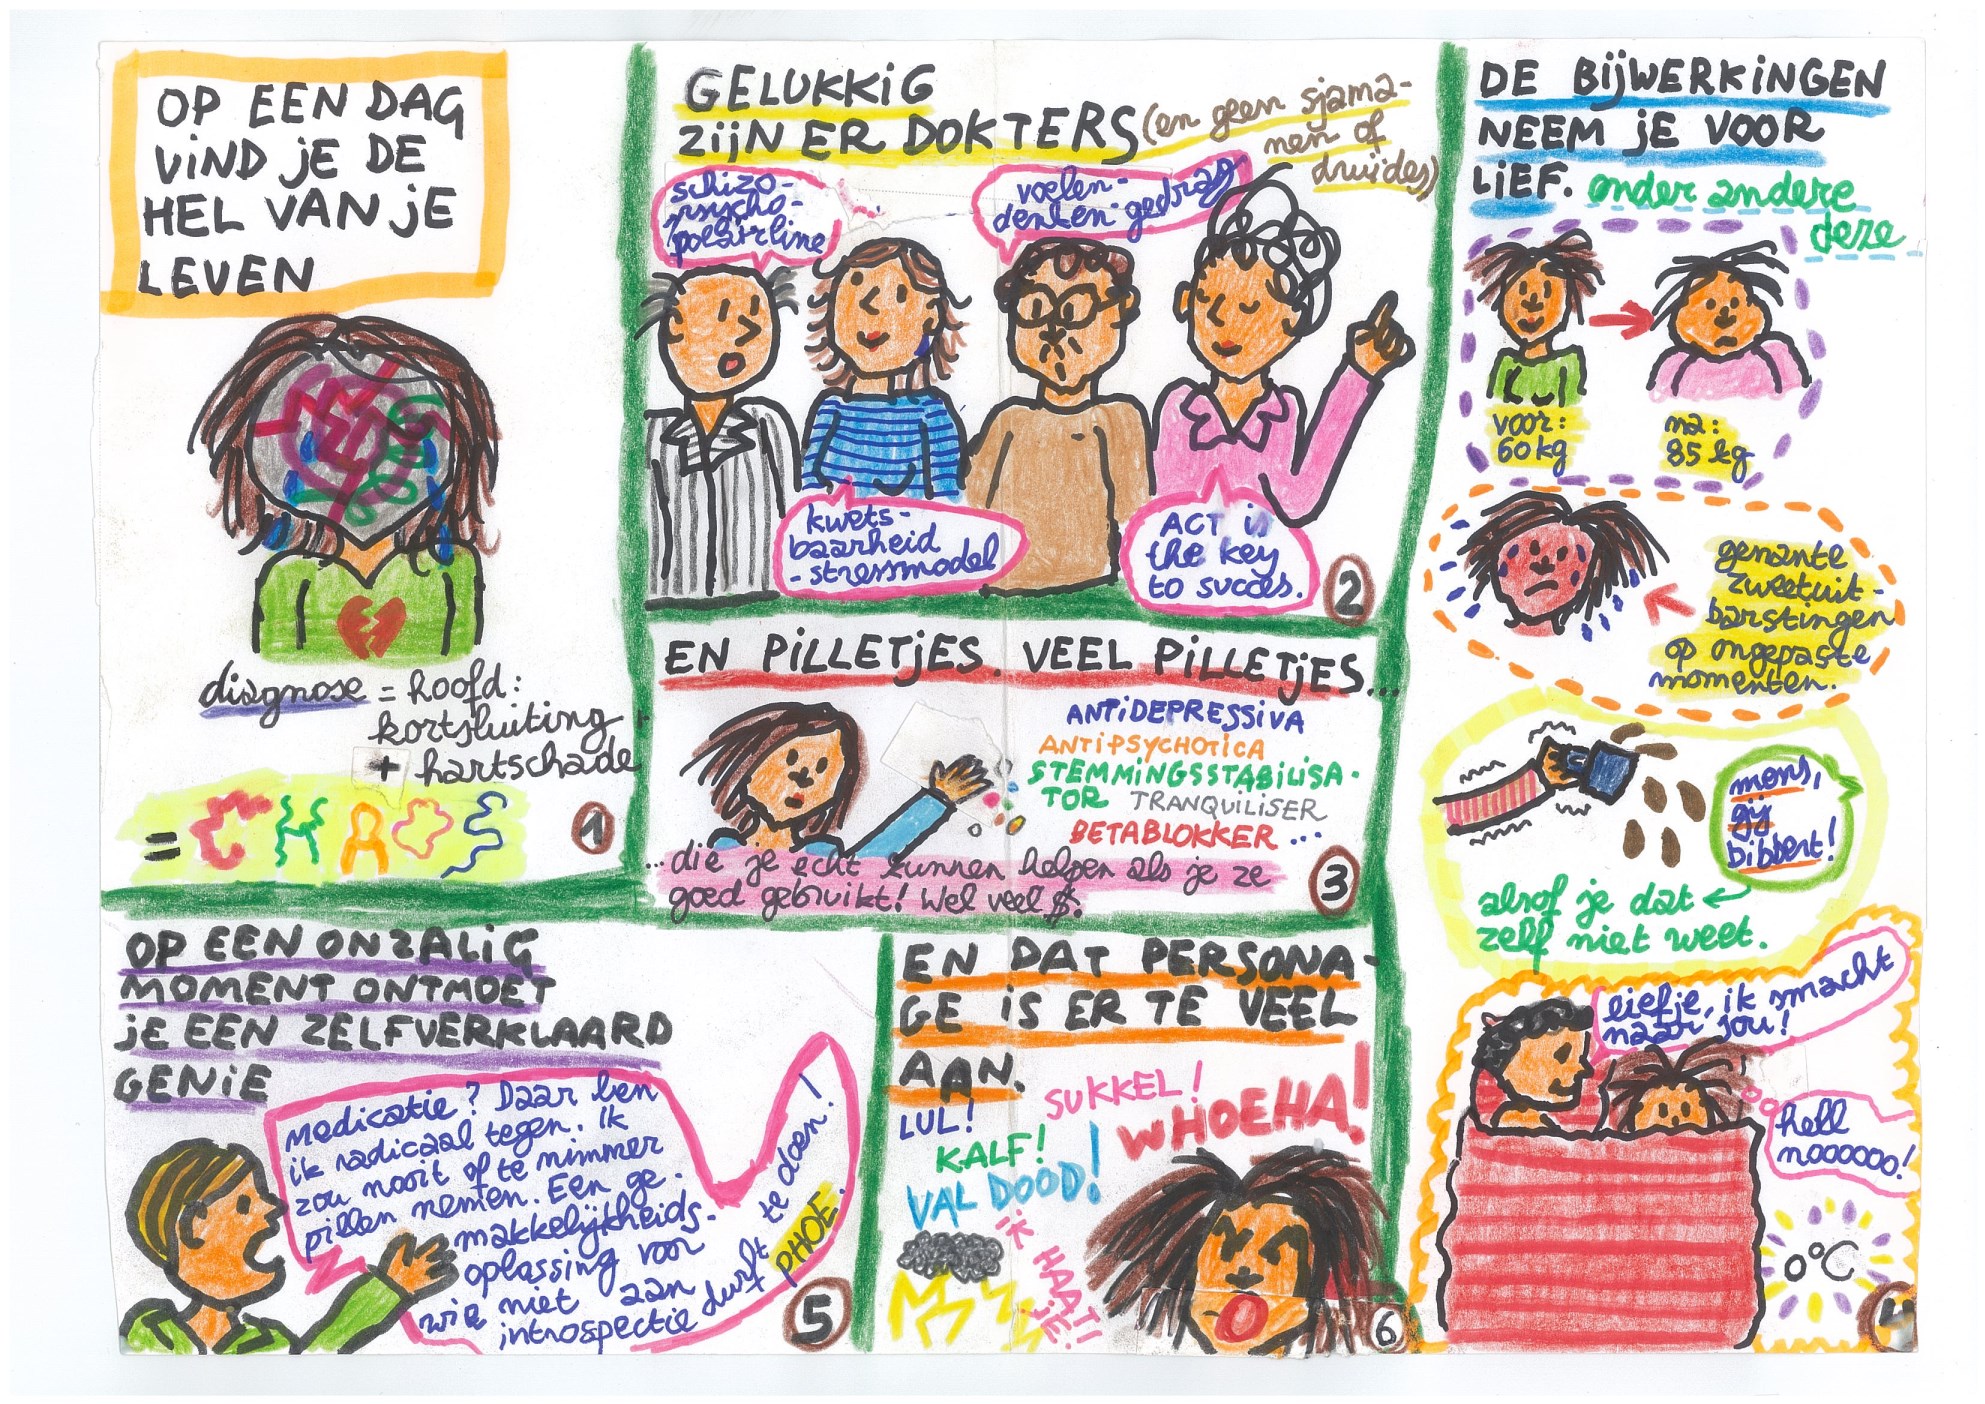 OP EEN DAG
VIND JE DE
HEL VAN JE
LEVEN
diagnose = hoofd:
kortsluiting
+ hartschade
= CHAOS
1
GELUKKIG
ZIJN ER DOKTERS (en geen sjama-
nen of
druïdes)
schizo-
psycho-
polairline
voelen-
denken-gedrag
kwets-
baarheid
-stressmodel
ACT is
the key
to succes.
2
EN PILLETJES. VEEL PILLETJES...
ANTIDEPRESSIVA
ANTIPSYCHOTICA
STEMMINGSSTABILISA-
TOR TRANQUILISER
BETABLOKKER ...
...die je echt kunnen helpen als je ze
goed gebruikt! Wel veel $.
3
DE BIJWERKINGEN
NEEM JE VOOR
LIEF. onder andere
deze
voor:
60 kg
na:
85 kg
genante
zweetuit-
barstingen
op ongepaste
momenten.
mens,
gij
bibbert!
alsof je dat
zelf niet weet.
liefje, ik smacht
naar jou!
hell
nooooo!
0°C
4
OP EEN ONZALIG
MOMENT ONTMOET
JE EEN ZELFVERKLAARD
GENIE
Medicatie? Daar ben
ik radicaal tegen. Ik
zou nooit of te nimmer
pillen nemen. Een ge-
makkelijkheids-
oplossing voor
wie niet aan
introspectie durft te doen!
PHOE.
5
EN DAT PERSONA-
GE IS ER TE VEEL
AAN.
LUL!
SUKKEL!
KALF!
WHOEHA!
VAL DOOD!
IK HAAT JE!
6